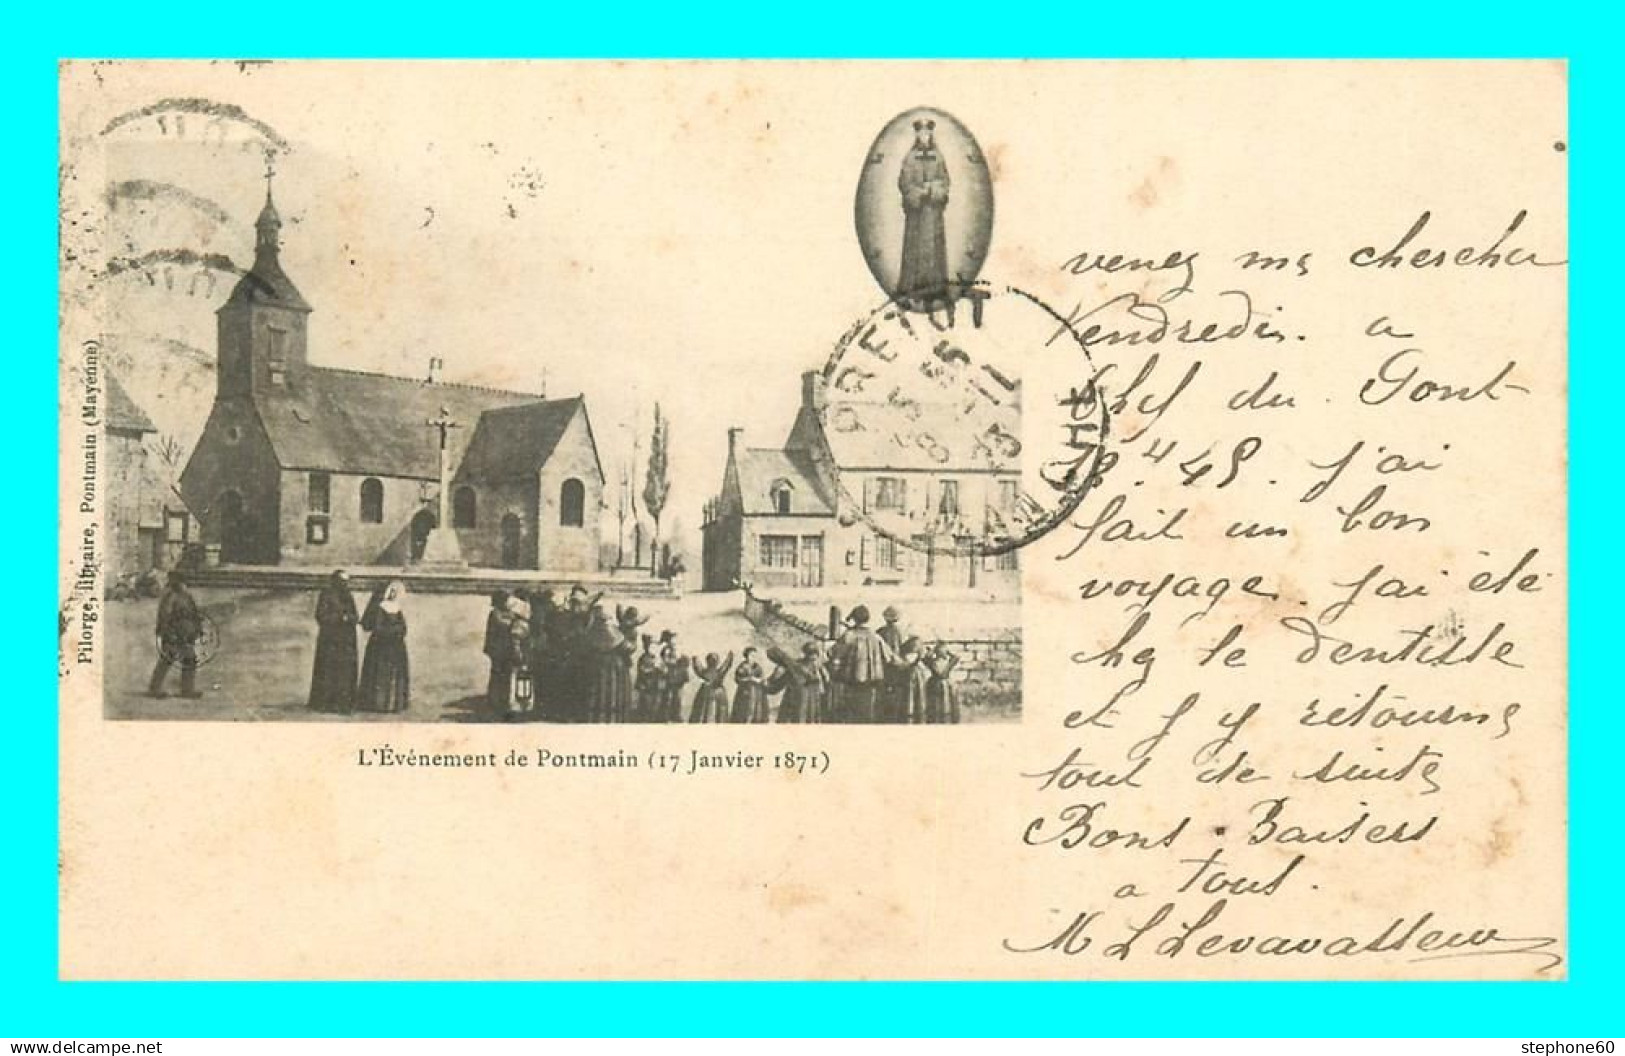 Pilorge, libraire, Pontmain (Mayenne)
L'Événement de Pontmain (17 Janvier 1871)
BRETOT
MANCHE
venez me chercher
Vendredi. a
du Pont
45. j'ai
fait un bon
voyage. j'ai été
chez le dentiste
et j y retourne
tout de suite
Bons Baisers
a tous.
M L Levavasseur
www.delcampe.net
stephone60